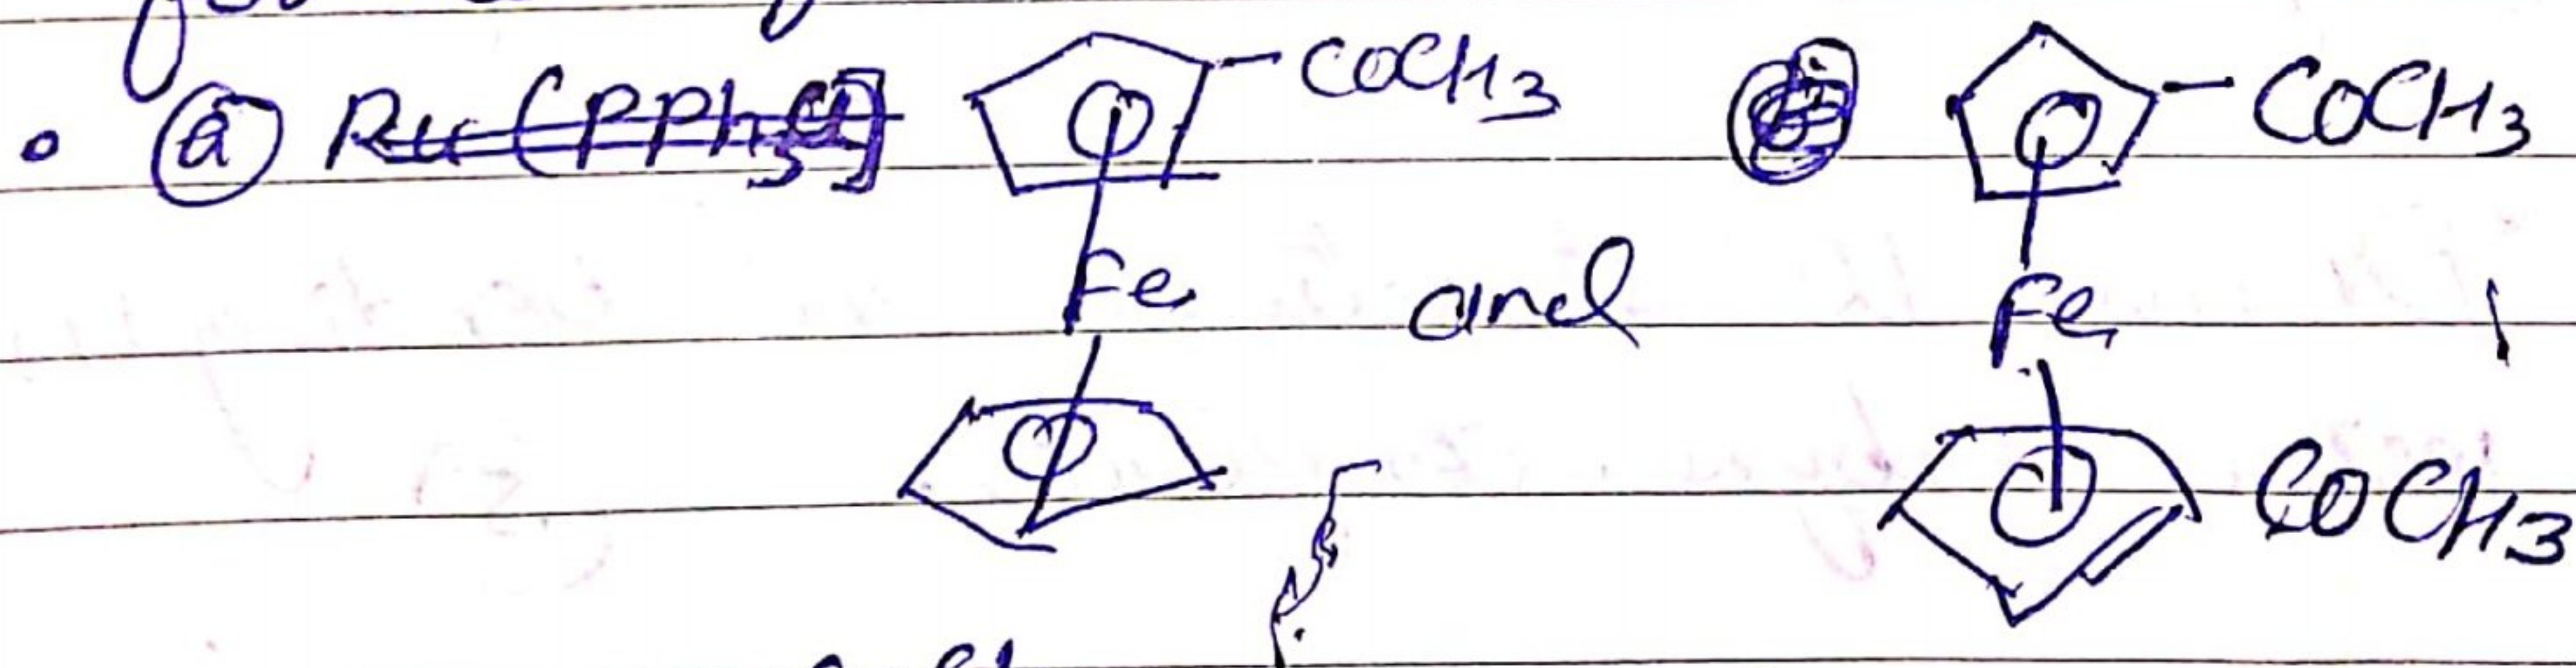 (a) Ru(PPh3Cl] COCH3 COCH3
Fe and Fe
COCH3